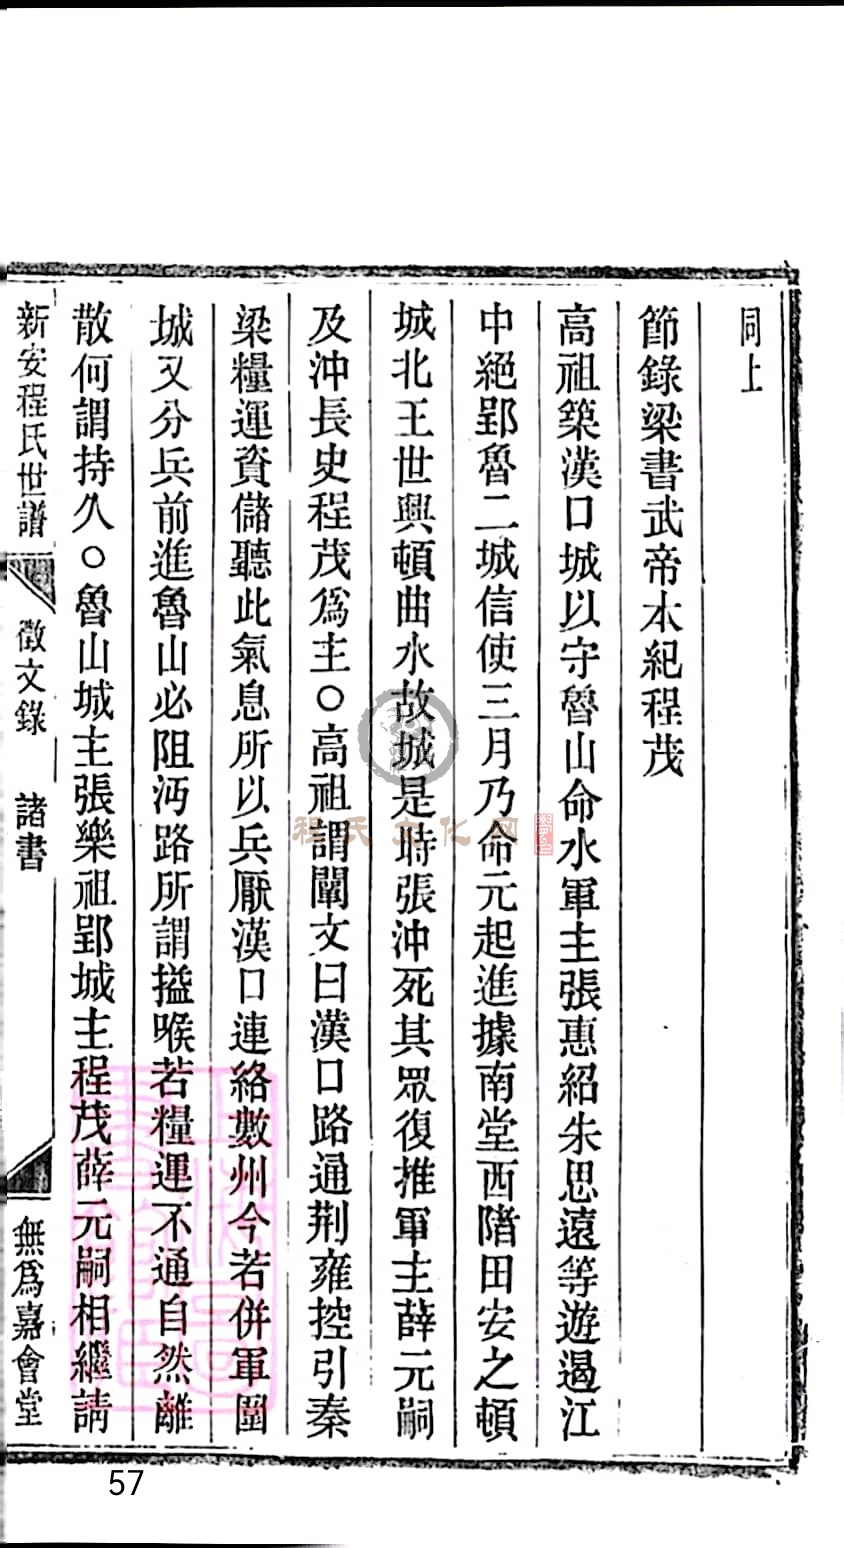 同上
節錄梁書武帝本紀程茂
高祖築漢口城以守魯山命水軍主張惠紹朱思遠等遊遏江
中絕郢魯二城信使三月乃命元起進據南堂西陼田安之頓
城北王世興頓曲水故城是時張沖死其眾復推軍主薛元嗣
及沖長史程茂為主○高祖謂闡文曰漢口路通荆雍控引秦
梁糧運資儲聽此氣息所以兵厭漢口連絡數州今若併軍圍
城又分兵前進魯山必阻沔路所謂搤喉若糧運不通自然離
散何謂持久○魯山城主張樂祖郢城主程茂薛元嗣相繼請
新安程氏世譜 徵文錄 諸書 無為嘉會堂
程氏文化网
57